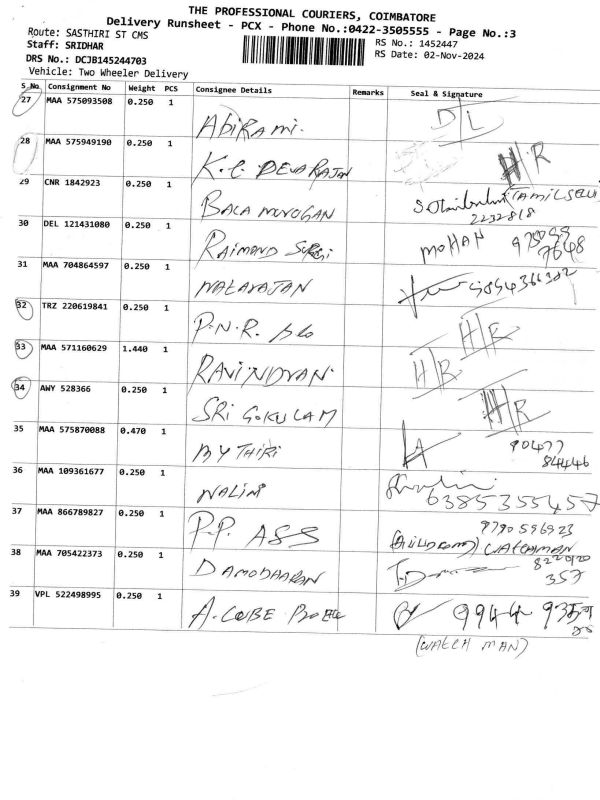 THE PROFESSIONAL COURIERS, COIMBATORE
Delivery Runsheet - PCX - Phone No.:0422-3505555 - Page No.:3
Route: SASTHIRI ST CMS
Staff: SRIDHAR
RS No.: 1452447
DRS No.: DCJB145244703
RS Date: 02-Nov-2024
Vehicle: Two Wheeler Delivery
S No Consignment No Weight PCS Consignee Details Remarks Seal & Signature
27 MAA 575093508 0.250 1 Abirami. D/L
28 MAA 575949190 0.250 1 K.C. DEVARAJAN H/R
29 CNR 1842923 0.250 1 BALA MURUGAN (TAMILSELVI
2232818
30 DEL 121431080 0.250 1 RAIMOND MOHAN
31 MAA 704864597 0.250 1
32 TRZ 220619841 0.250 1 P.N.R. H/R
33 MAA 571160629 1.440 1 RAVINDRAN. H/R
34 AWY 528366 0.250 1 SRI GOKULAM H/R
35 MAA 575870088 0.470 1 MYTHIRI 90477
84446
36 MAA 109361677 0.250 1 NALINI 6385355457
37 MAA 866789827 0.250 1 P.P. ASS 9790596923
WATCHMAN
38 MAA 705422373 0.250 1 DAMODAARAN 8220120
357
39 VPL 522498995 0.250 1 A. CUBE 9944
(WATCH MAN)